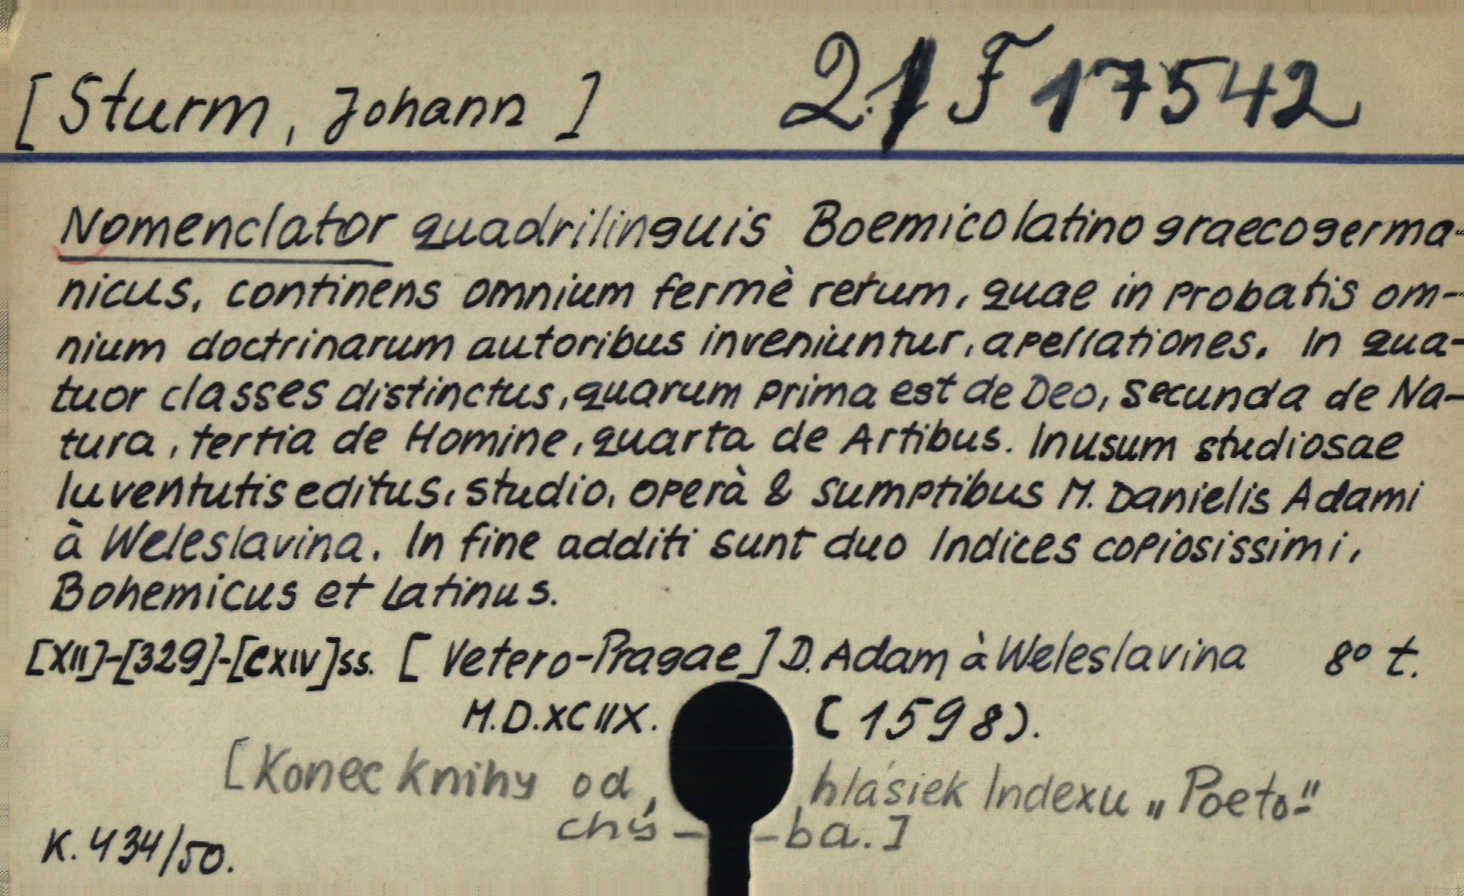 [Sturm, Johann]
21 F 17542
Nomenclator quadrilinguis Boemicolatino graecogerma-
nicus, continens omnium fermè rerum, quae in probatis om-
nium doctrinarum autoribus inveniuntur, apellationes. In qua-
tuor classes distinctus, quarum prima est de Deo, secunda de Na-
tura, tertia de Homine, quarta de Artibus. Inusum studiosae
Iuventutis editus, studio, operà & sumptibus M. Danielis Adami
à Weleslavina. In fine additi sunt duo Indices copiosissimi,
Bohemicus et Latinus.
[XII]-[329]-[CXIV]ss. [Vetero-Pragae] D. Adam à Weleslavina 8° t.
M.D.XCIIX. (1598).
[Konec knihy od hlásiek Indexu „Poeto-"
chý- -ba.]
K. 434/50.